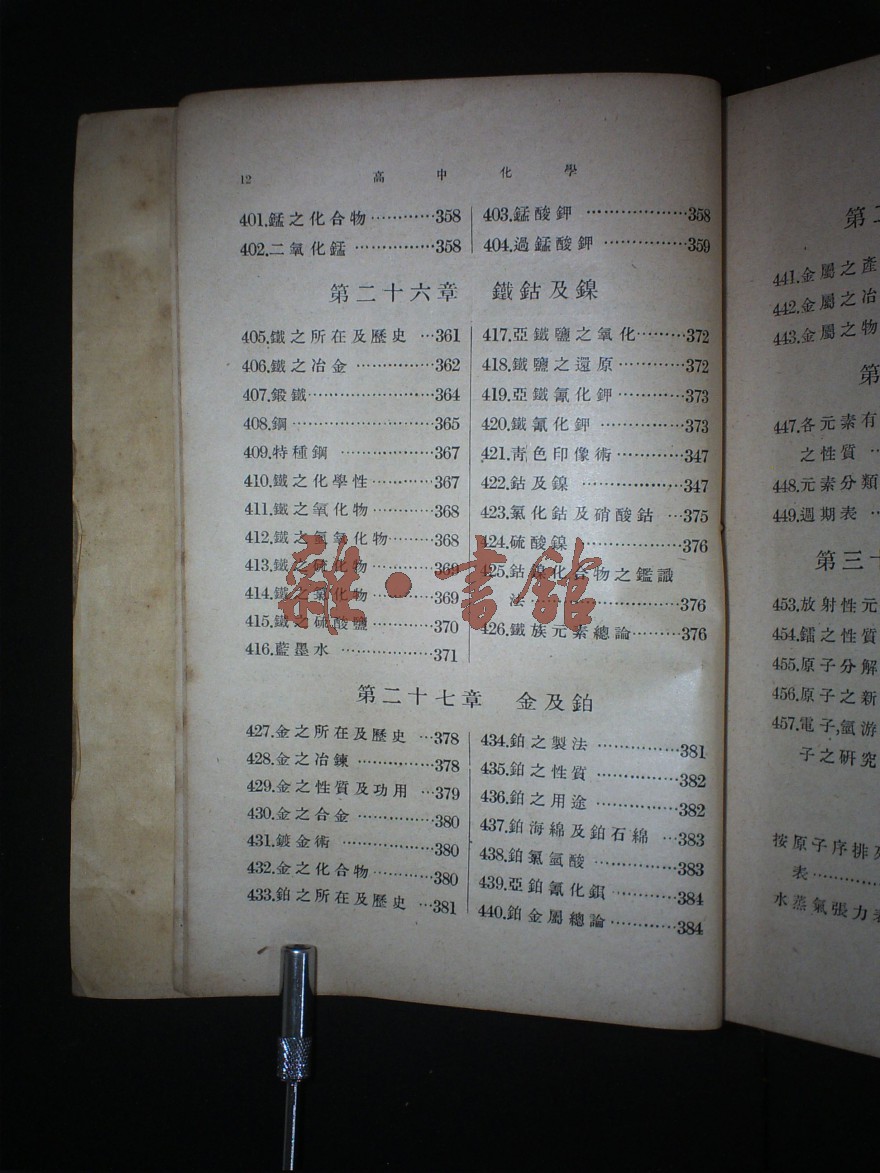 12 高中化學
401.錳之化合物…………358
402.二氧化錳……………358
403.錳酸鉀………………358
404.過錳酸鉀……………359
第二十六章 鐵鈷及鎳
405.鐵之所在及歷史…361
406.鐵之冶金……………362
407.鍛鐵…………………364
408.鋼……………………365
409.特種鋼………………367
410.鐵之化學性…………367
411.鐵之氧化物…………368
412.鐵之氫氧化物………368
413.鐵之硫化物…………369
414.鐵之氯化物…………369
415.鐵之硫酸鹽…………370
416.藍墨水………………371
417.亞鐵鹽之氧化………372
418.鐵鹽之還原…………372
419.亞鐵氰化鉀…………373
420.鐵氰化鉀……………373
421.靑色印像術…………347
422.鈷及鎳………………347
423.氯化鈷及硝酸鈷…375
424.硫酸鎳………………376
425.鈷鎳化合物之鑑識
法……………………376
426.鐵族元素總論………376
第二十七章 金及鉑
427.金之所在及歷史…378
428.金之冶鍊……………378
429.金之性質及功用…379
430.金之合金……………380
431.鍍金術………………380
432.金之化合物…………380
433.鉑之所在及歷史…381
434.鉑之製法……………381
435.鉑之性質……………382
436.鉑之用途……………382
437.鉑海綿及鉑石綿…383
438.鉑氯氫酸……………383
439.亞鉑氰化鋇…………384
440.鉑金屬總論…………384
雜·書館
441.金屬之產
442.金屬之冶
443.金屬之物
447.各元素有
之性質
448.元素分類
449.週期表
第三十
453.放射性元
454.鐳之性質
455.原子分解
456.原子之新
457.電子,氫游
子之硏究
按原子序排列
表…………
水蒸氣張力表